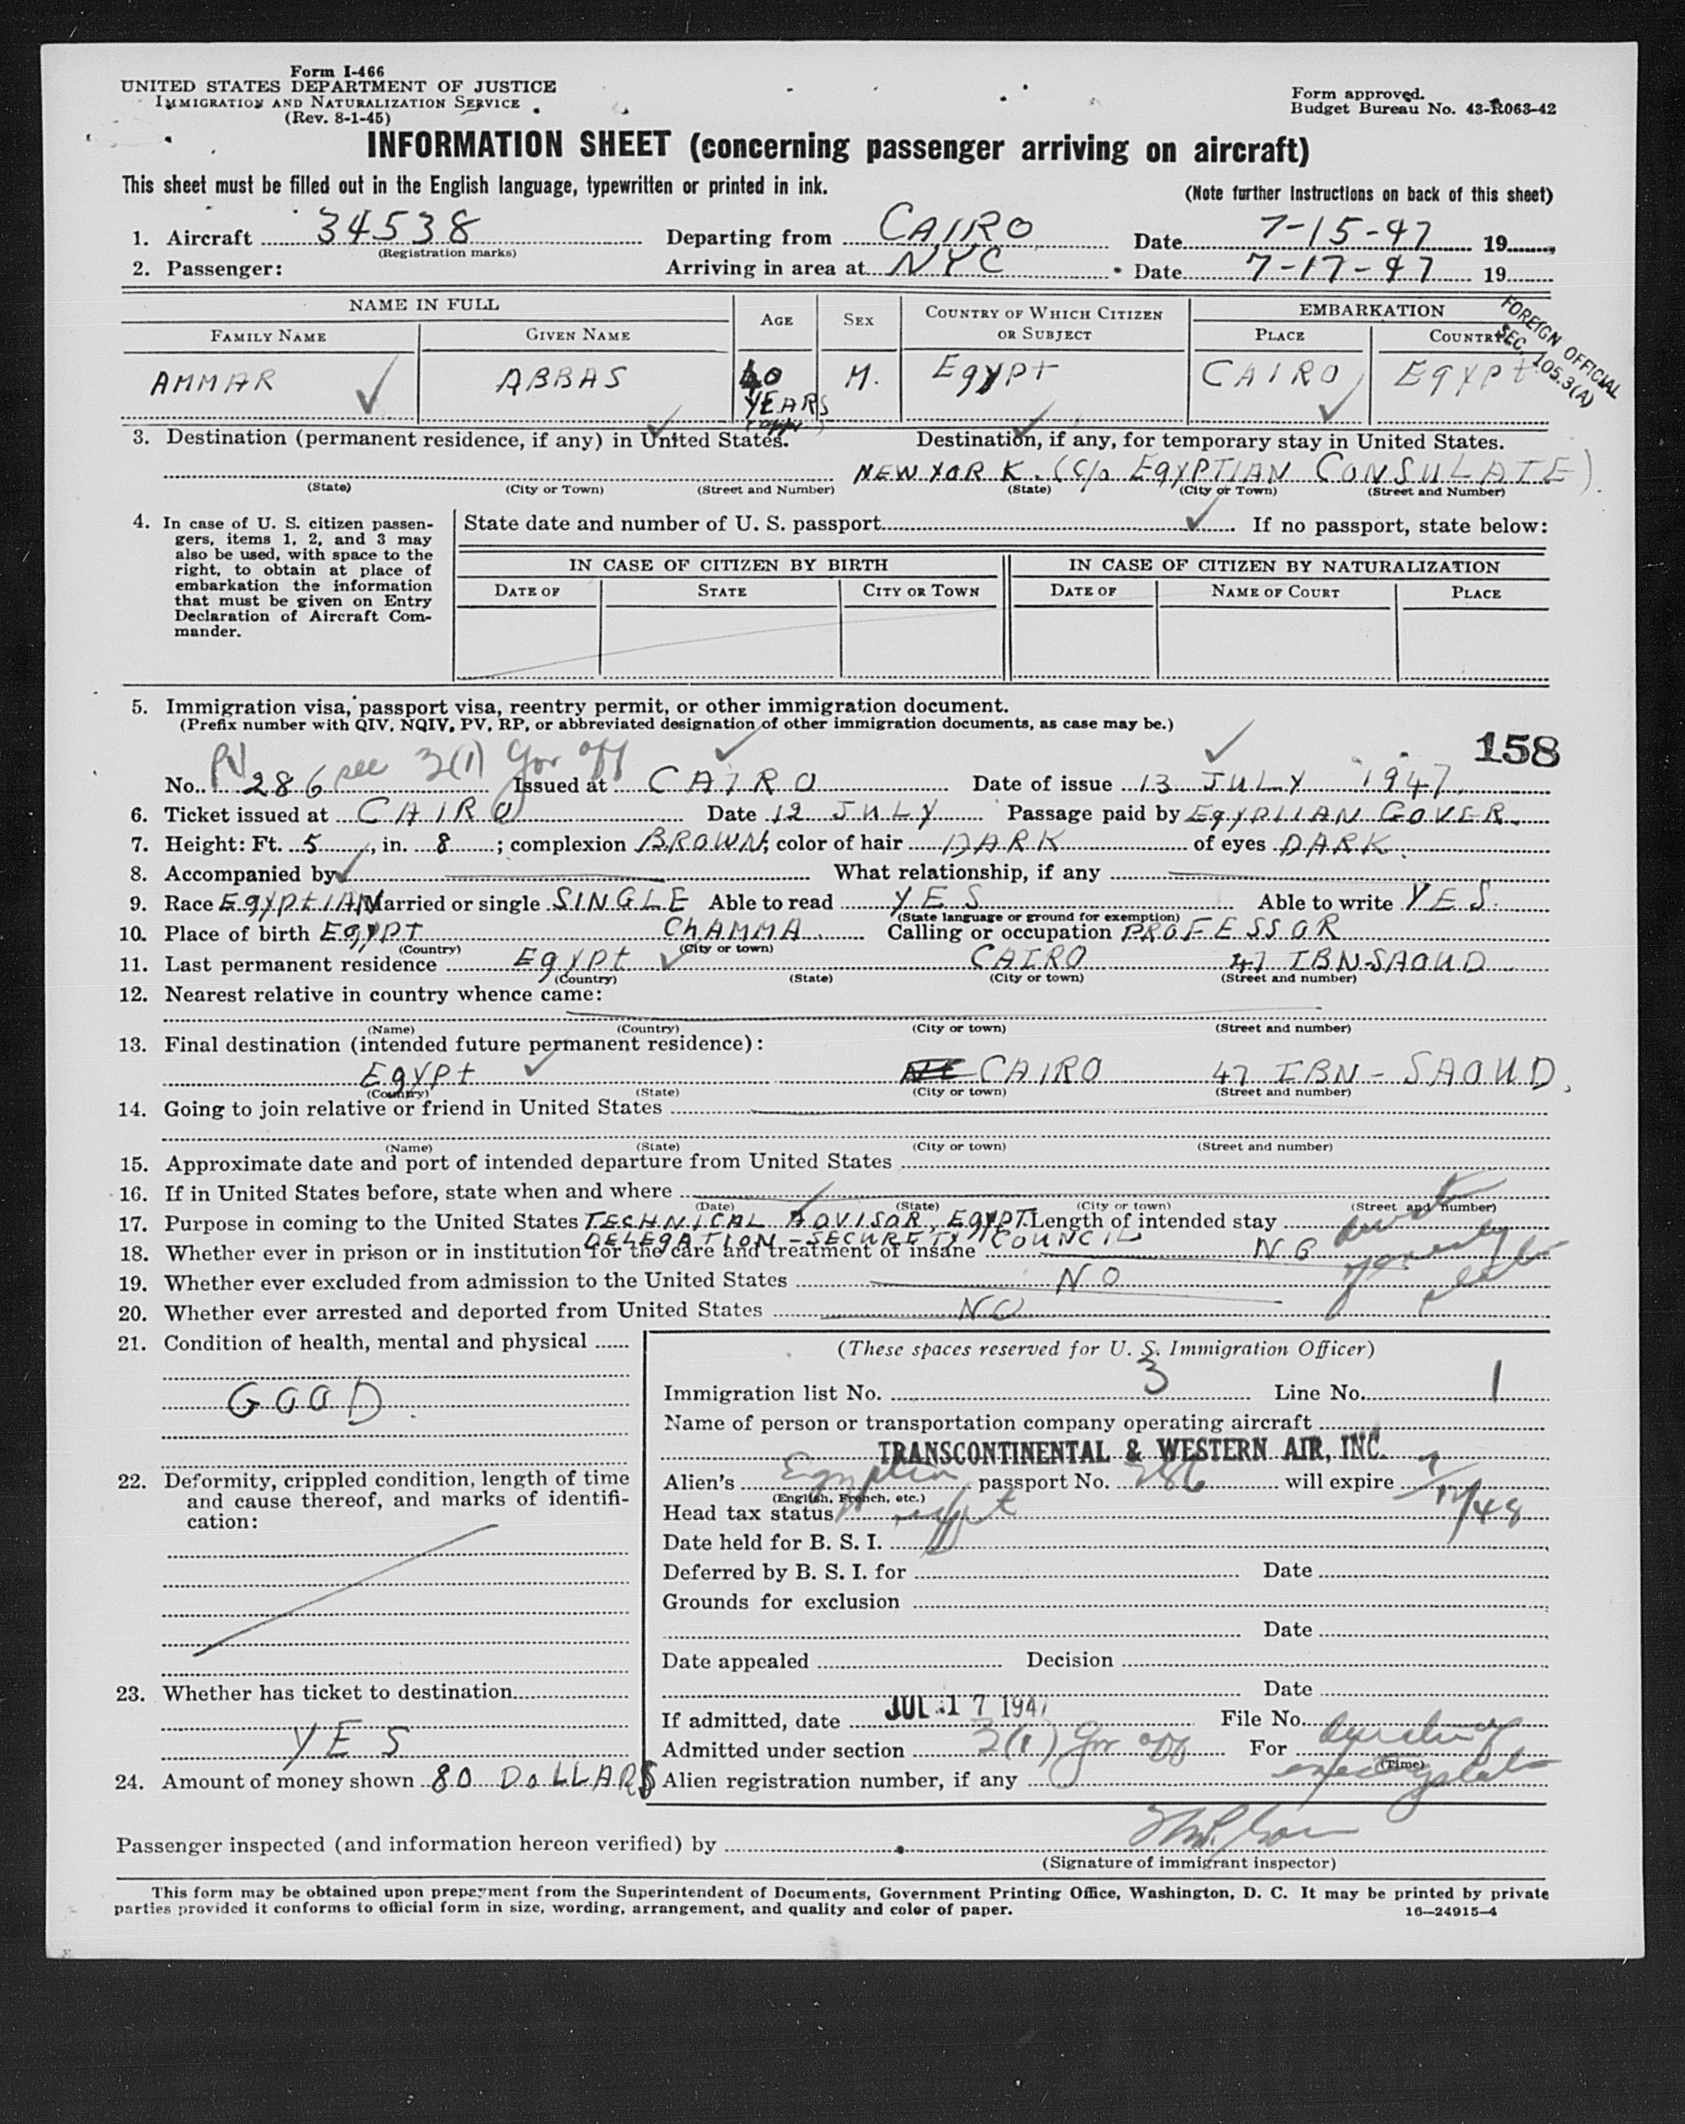 Form I-466
UNITED STATES DEPARTMENT OF JUSTICE
IMMIGRATION AND NATURALIZATION SERVICE
(Rev. 8-1-45)
Form approved.
Budget Bureau No. 43-R063-42
INFORMATION SHEET (concerning passenger arriving on aircraft)
This sheet must be filled out in the English language, typewritten or printed in ink.
(Note further instructions on back of this sheet)
1. Aircraft 34538 Departing from CAIRO Date 7-15-47 19
(Registration marks)
2. Passenger: Arriving in area at NYC Date 7-17-47 19
NAME IN FULL AGE SEX COUNTRY OF WHICH CITIZEN OR SUBJECT EMBARKATION
FAMILY NAME GIVEN NAME PLACE COUNTRY
FOREIGN OFFICIAL
SEC. 105.3(A)
AMMAR ABBAS 40 YEARS M. Egypt CAIRO Egypt
3. Destination (permanent residence, if any) in United States. Destination, if any, for temporary stay in United States.
NEW YORK. (C/o EGYPTIAN CONSULATE)
(State) (City or Town) (Street and Number) (State) (City or Town) (Street and Number)
4. In case of U. S. citizen passengers, items 1, 2, and 3 may also be used, with space to the right, to obtain at place of embarkation the information that must be given on Entry Declaration of Aircraft Commander.
State date and number of U. S. passport If no passport, state below:
IN CASE OF CITIZEN BY BIRTH IN CASE OF CITIZEN BY NATURALIZATION
DATE OF STATE CITY OR TOWN DATE OF NAME OF COURT PLACE
5. Immigration visa, passport visa, reentry permit, or other immigration document.
(Prefix number with QIV, NQIV, PV, RP, or abbreviated designation of other immigration documents, as case may be.)
158
No. PV 286 sec 3(1) Gov off Issued at CAIRO Date of issue 13 JULY 1947
6. Ticket issued at CAIRO Date 12 JULY Passage paid by EgYPTIAN GOVER.
7. Height: Ft. 5, in. 8; complexion BROWN; color of hair DARK of eyes DARK.
8. Accompanied by What relationship, if any
9. Race EgyptIAN Married or single SINGLE Able to read YES Able to write YES.
(State language or ground for exemption)
10. Place of birth Egypt CHAMMA. Calling or occupation PROFESSOR
(Country) (City or town)
11. Last permanent residence Egypt CAIRO 47 IBN-SAOUD
(Country) (State) (City or town) (Street and number)
12. Nearest relative in country whence came:
(Name) (Country) (City or town) (Street and number)
13. Final destination (intended future permanent residence):
Egypt CAIRO 47 IBN-SAOUD.
(Country) (State) (City or town) (Street and number)
14. Going to join relative or friend in United States
(Name) (State) (City or town) (Street and number)
15. Approximate date and port of intended departure from United States
16. If in United States before, state when and where
(Date) (State) (City or town) (Street and number)
17. Purpose in coming to the United States TECHNICAL ADVISOR, EGYPT. Length of intended stay
DELEGATION - SECURETY COUNCIL
18. Whether ever in prison or in institution for the care and treatment of insane NO
19. Whether ever excluded from admission to the United States NO
20. Whether ever arrested and deported from United States NO
21. Condition of health, mental and physical
GOOD.
22. Deformity, crippled condition, length of time and cause thereof, and marks of identification:
23. Whether has ticket to destination
YES
24. Amount of money shown 80 DOLLARS
(These spaces reserved for U. S. Immigration Officer)
Immigration list No. 3 Line No. 1
Name of person or transportation company operating aircraft
TRANSCONTINENTAL & WESTERN AIR, INC.
Alien's Egyptian passport No. 286 will expire 7/12/48
(English, French, etc.)
Head tax status
Date held for B. S. I.
Deferred by B. S. I. for Date
Grounds for exclusion
Date
Date appealed Decision
Date
If admitted, date JUL 17 1947 File No.
Admitted under section 3(1) Gov off For
(Time)
Alien registration number, if any
Passenger inspected (and information hereon verified) by
(Signature of immigrant inspector)
This form may be obtained upon prepayment from the Superintendent of Documents, Government Printing Office, Washington, D. C. It may be printed by private
parties provided it conforms to official form in size, wording, arrangement, and quality and color of paper.
16—24915-4